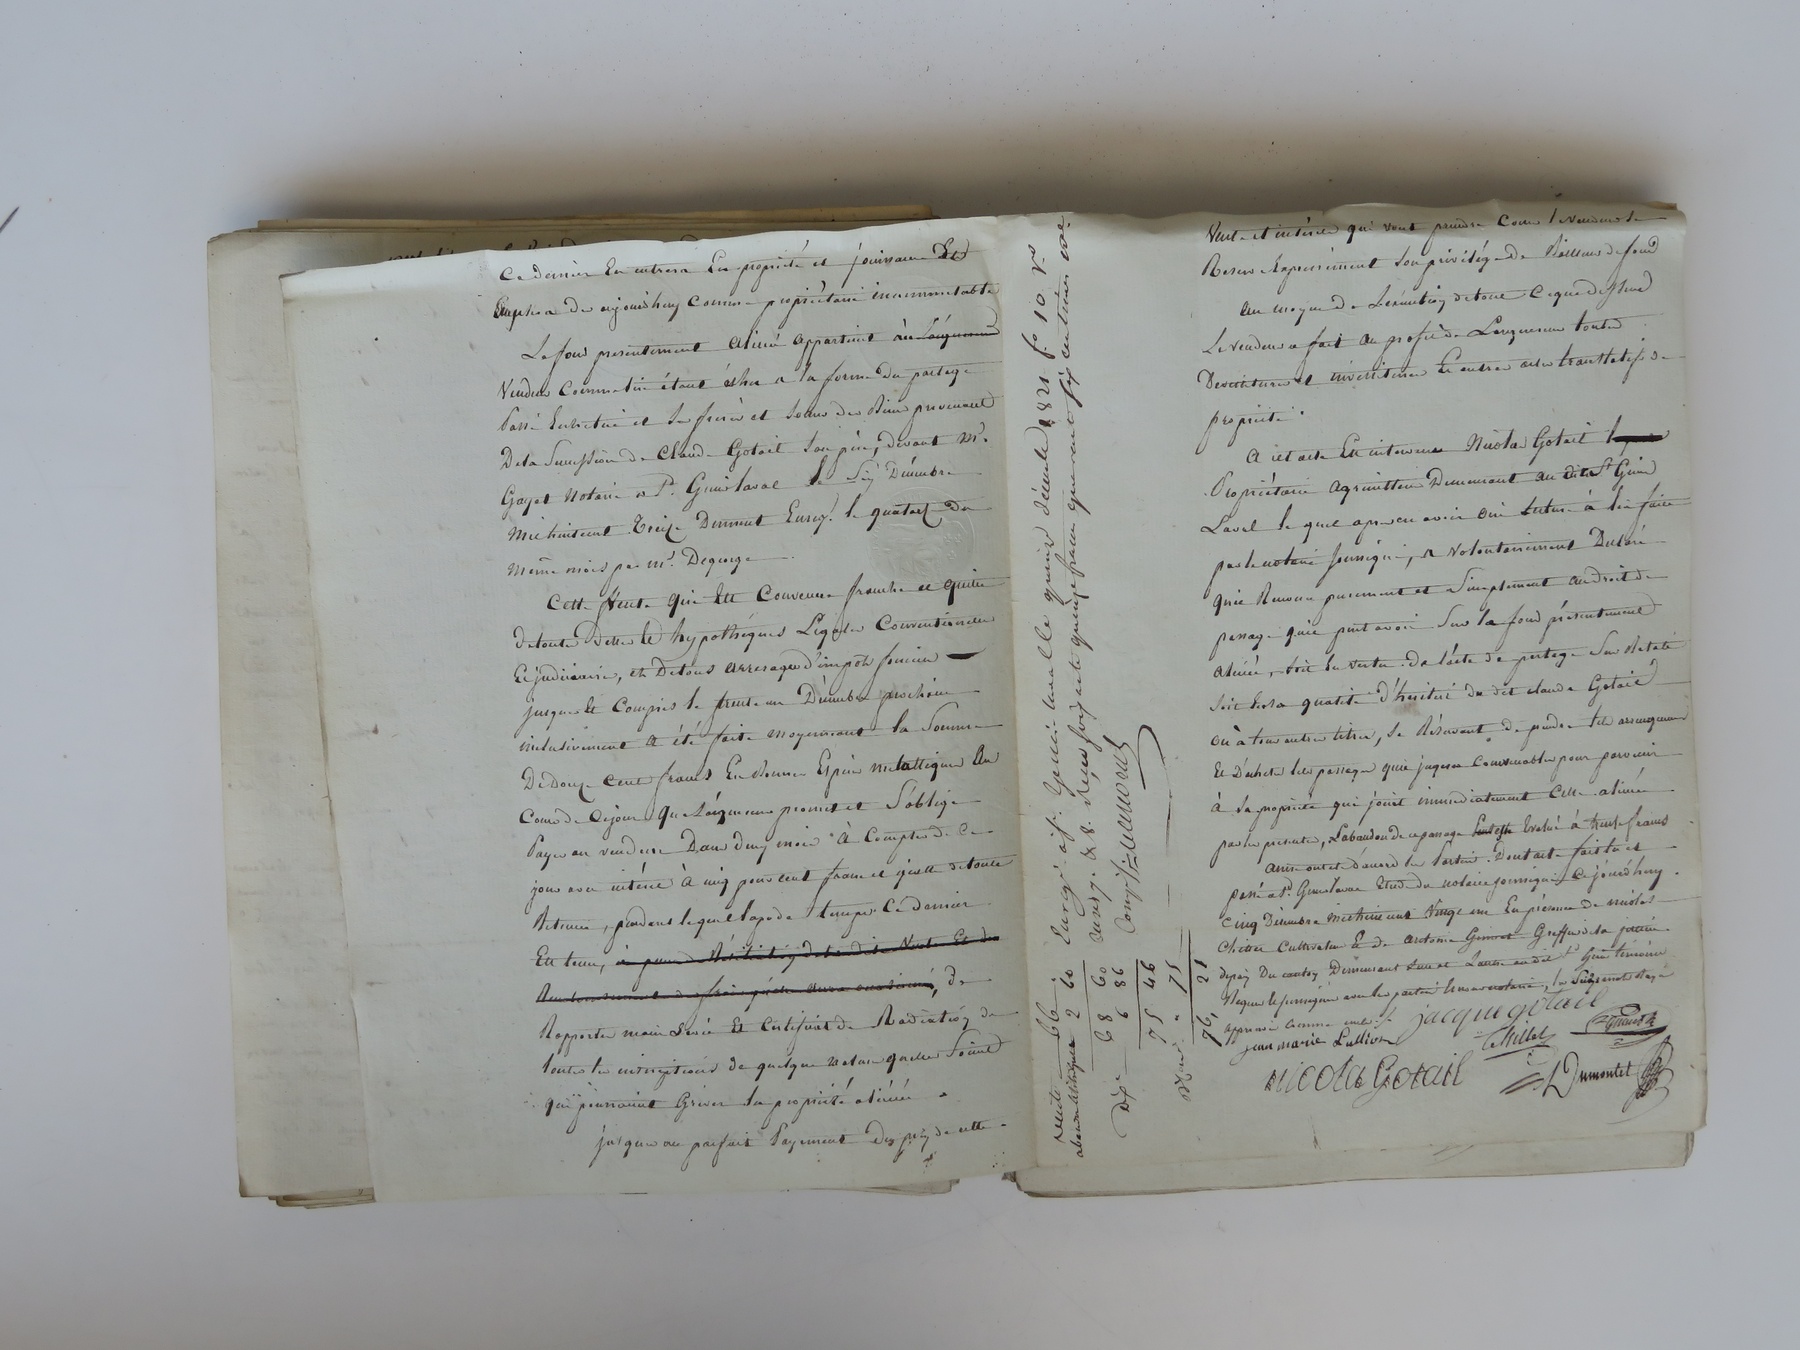 Ce dernier En entrera En propriété et jouissance Des
Emplira de aujourdhuy comme propriétaire incommutable
Le fond presentement aliéné appartient au
Vendeur comme lui étant échu a la forme du partage
Passé Entre lui et Ses freres et soeurs des Biens provenant
De la Succession de Claude Gotail Son père, devant Mr
Gayet Notaire a St. Genis laval le Six Décembre
Mil huit cent treize Dument Enregt. le quatorze du
même mois par mr. Degeorge
Cette Vente qui Est Convenue franche et quitte
de toute dettes et hypothéques Légales Conventionnelles
Et judiciaire, et De tous arrerages d'impôts foncier
jusques Et Compris le trente un Décembre prochain
inclusivement a été faite moyennant la Somme
De Douze cent francs En Bonnes Espèces métalliques Au
Cours de Ce jour Que L'acquereur promet et S'oblige
Payer au vendeur Dans deux mois à Compter de Ce
jour avec intéret à cinq pour cent franc et quitte de toute
Retenue, pendant lequel laps de temps Ce dernier
Est tenu, à peine de Résiliation de la dite Vente Et des
, de
Rapporter main Levée Et Certificat de Radiation de
toutes les inscriptions de quelque nature qu'elles Soient
qui pourraient Grever la propriété aliénée
jusques au parfait Payement du prix de cette
recette 66
abandon de passage 2 60
68 60
Dixe 6 86
75 46
75
76, 21
Enregé. à St. Genis laval le quinze décembre 1821 fo. 10 Vo.
Case 7. & 8. Reçu soixante quinze francs quarante six centimes avec
Vente et intérets qui vont prendre Cours le Vendeur Se
Reserve Expressément Son privilége de Bailleur de fond
Au moyen de L'exécution de tout Ce que dessus
Le vendeur a fait au profit de L'acquereur toutes
Devestitures et investitures Et autres actes translatifs de
propriété.
A cet acte Est intervenu Nicolas Gotail
Propriétaire agriculteur Demeurant au dit St Genis
Laval le quel apres en avoir oui lecture à lui faite
par le notaire soussigné, a volontairement Déclaré
qu'il Renonce purement et Simplement au droit de
passage qu'il peut avoir Sur le fond présentement
aliéné, Soit En vertu de l'acte de partage Sus Relaté
Soit En Sa qualité d'héritier du dit claude Gotail
Ou à tout autre titre, Se Réservant de prendre tels arrangements
Et D'acheter les passages qu'il jugera Convenables pour parvenir
à Sa propriété qui joint immediatement Celle aliénée
par les présentes, L'abandon de ce passage Evalué à trente francs
Ainsi ont été d'accord les Parties. Dont acte fait lu et
passé a St. Genis laval Etude du notaire soussigné Ce jourd'huy
Cinq Décembre Mil huit cent Vingt un En présence de nicolas
Chillet Cultivateur Et de Antoine Greffier de la justice
de paix Du canton Demeurant L'un et L'autre au dit St Genis témoins
Requis le soussignés avec les parties Et nous notaire,
approuvé comme nulle
jacque gotail
jean marie Lullion
Chillet
nicolas Gotail
Dumontet